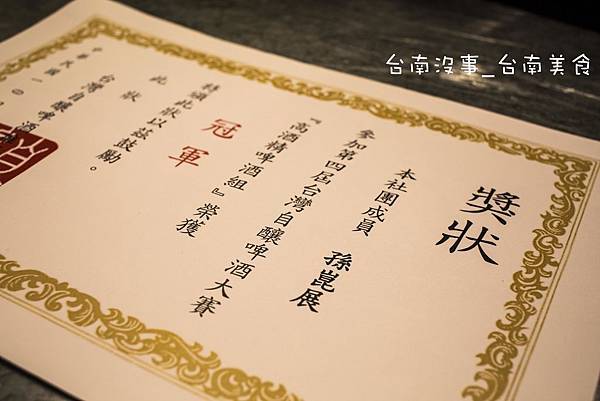 台南沒事_台南美食
獎狀
本社團成員 孫崑展
參加第四屆台灣自釀啤酒大賽
『高酒精啤酒組』榮獲
冠軍
特頒此狀以茲鼓勵。
此狀
台灣自釀啤酒
中華民國一０